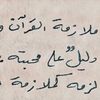 ملازمة القرآن
دليل على محبته
كملازمة